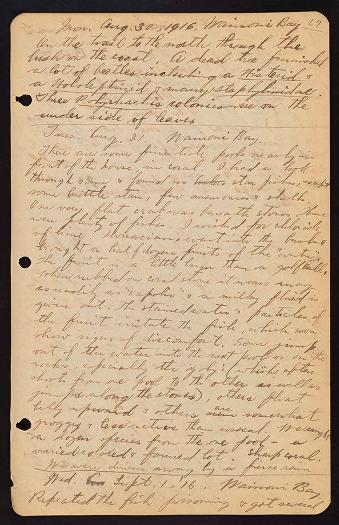 Mon. Aug. 30, 1916. Wainoni Bay. 29
On the trail to the north through the
bush on the coast. A dead tree furnished
a lot of beetles including a Histerid &
a Hololeptinid & many staphylinidae.
Three Polyrhachis colonies were on the
under side of leaves
Tues. Aug. 31 Wainoni Bay.
There are some fine tide pools nearly in
front of the house, in coral. I had a look
through some & found no star fishes, except
some brittle stars, few anemonies & shells.
One very flat crab was beneath stones. There
were plenty of fishes. I wished for chloride
of lime. Ukaraciana went into the bush &
brought a half dozen fruits of the
The fruit is a little larger than a golf ball.
When rubbed on coral stone it wears away
as readily as "sapolio" & a milky fluid is
given out. The stained water & particles of
the fruit irritate the fish, which soon
show signs of discomfort. Some jump
out of the water into the next pool or on the
rocks, especially the goby (which often
shoots from one pool to the other as well as
jumps along the stones), others float
belly upward & others are somewhat
groggy & less active than usual. We caught
a dozen species from the one pool - a
varied & pruned lot. Sharp coral.
We were driven away by a fierce rain
Wed. Sept. 1. 16. Wainoni Bay
Repeated the fish poisoning & got several